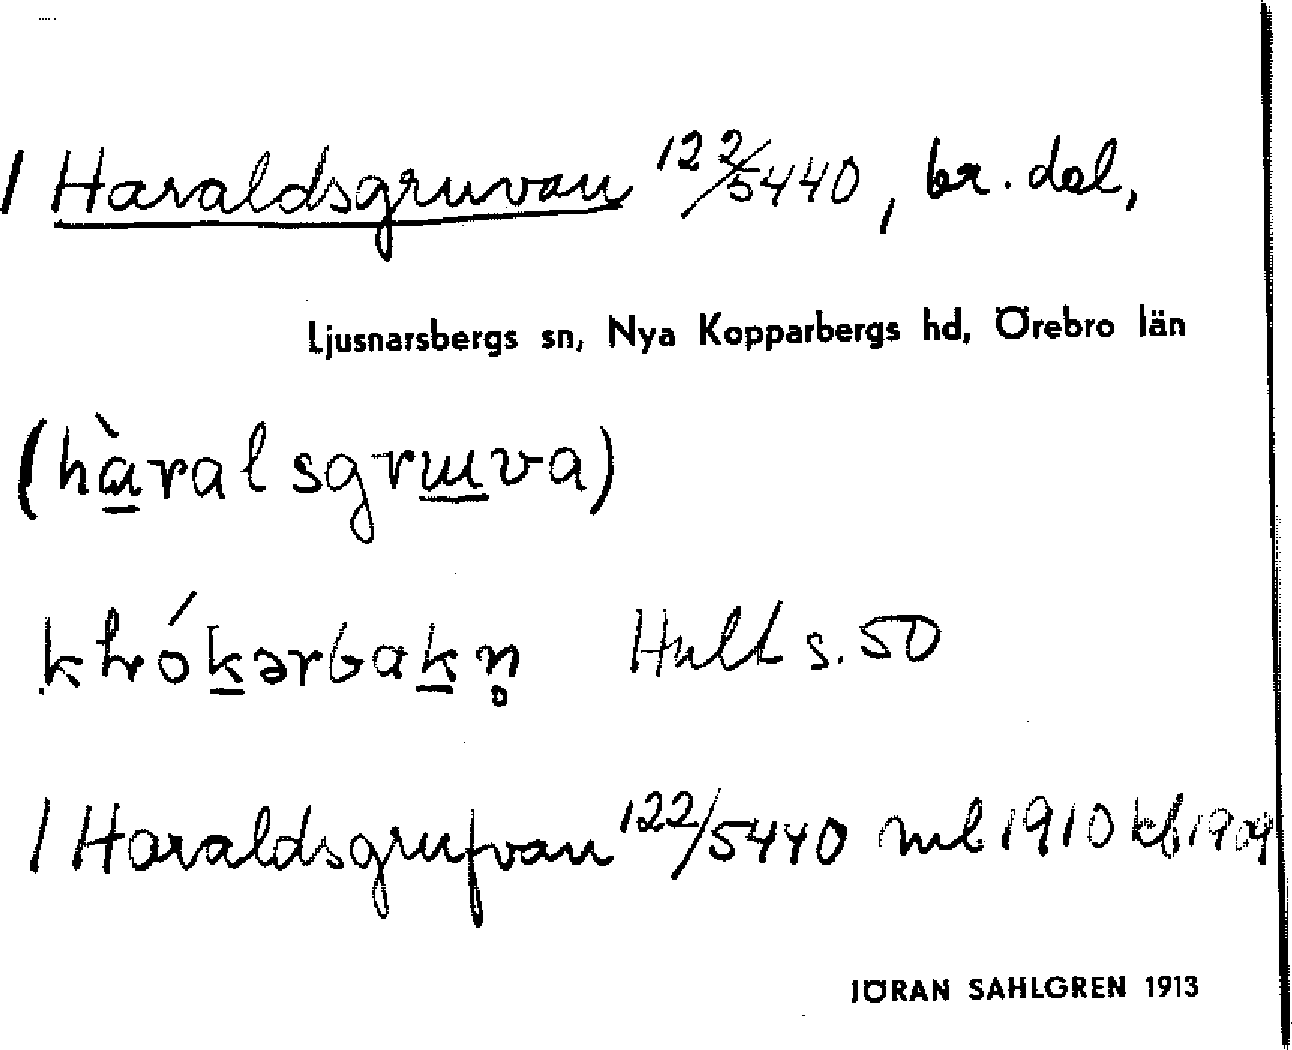 / Haraldsgruvan 122/5440, br. del,
Ljusnarsbergs sn, Nya Kopparbergs hd, Örebro län
(hàralsgruva)
Hult s. 50
/ Haraldsgrufvan 122/5440 ml 1910 kb 1909
JÖRAN SAHLGREN 1913